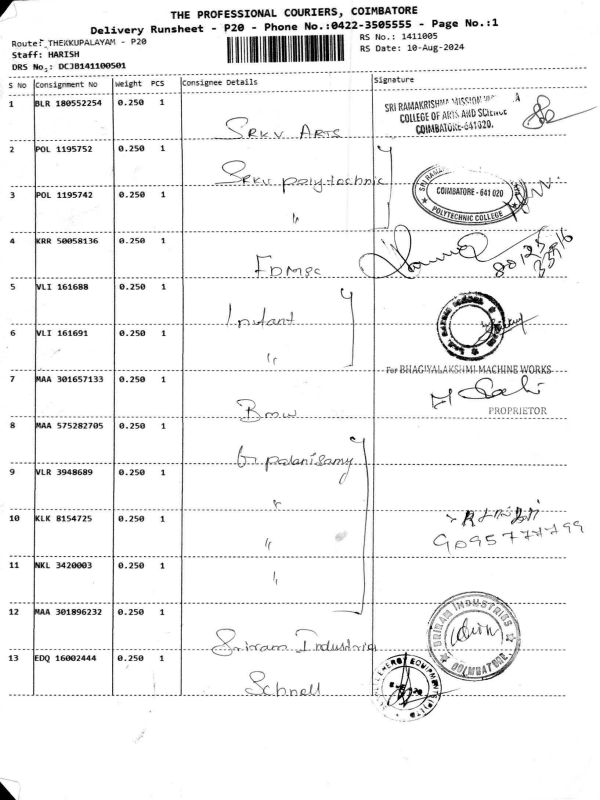 THE PROFESSIONAL COURIERS, COIMBATORE
Delivery Runsheet - P20 - Phone No.:0422-3505555 - Page No.:1
Route: THEKKUPALAYAM - P20
RS No.: 1411005
Staff: HARISH
RS Date: 10-Aug-2024
DRS No.: DCJB141100501
S No Consignment No Weight PCS Consignee Details Signature
1 BLR 180552254 0.250 1 SRKV ARTS
SRI RAMAKRISHNA MISSION
COLLEGE OF ARTS AND SCIENCE
COIMBATORE-641020.
2 POL 1195752 0.250 1 SRKV polytechnic
3 POL 1195742 0.250 1 "
COIMBATORE - 641 020
POLYTECHNIC COLLEGE
4 KRR 50058136 0.250 1
5 VLI 161688 0.250 1
6 VLI 161691 0.250 1 "
For BHAGIYALAKSHMI MACHINE WORKS
7 MAA 301657133 0.250 1 Bmw
PROPRIETOR
8 MAA 575282705 0.250 1 palanisamy
9 VLR 3948689 0.250 1 "
10 KLK 8154725 0.250 1 "
11 NKL 3420003 0.250 1 "
12 MAA 301896232 0.250 1 Sriram Industries
SRIRAM INDUSTRIES
COIMBATORE
13 EDQ 16002444 0.250 1 Schnell